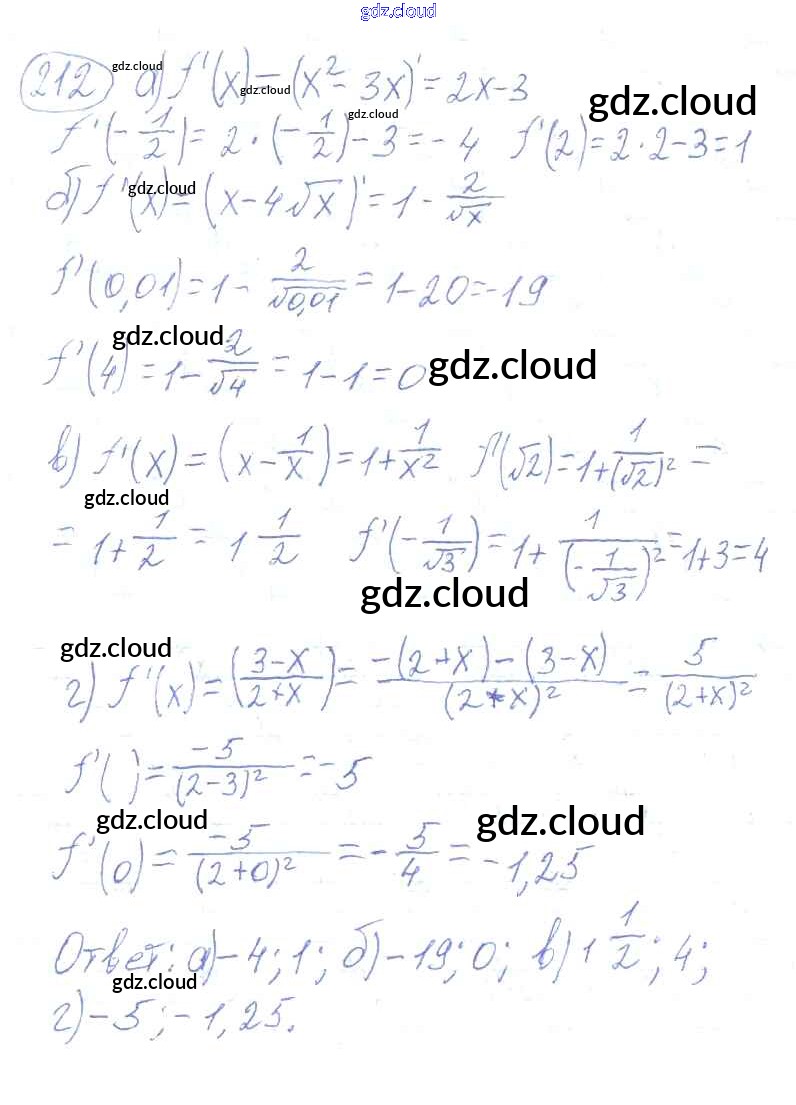 gdz.cloud
212 а) f'(x) = (x² - 3x)' = 2x - 3
gdz.cloud
gdz.cloud
gdz.cloud
gdz.cloud
f'(-1/2) = 2·(-1/2) - 3 = -4 f'(2) = 2·2 - 3 = 1
б) f'(x) = (x - 4√x)' = 1 - 2/√x
gdz.cloud
f'(0,01) = 1 - 2/√0,01 = 1 - 20 = -19
gdz.cloud
f'(4) = 1 - 2/√4 = 1 - 1 = 0
gdz.cloud
в) f'(x) = (x - 1/x)' = 1 + 1/x² f'(√2) = 1 + 1/(√2)² =
gdz.cloud
= 1 + 1/2 = 1 1/2 f'(-1/√3) = 1 + 1/(-1/√3)² = 1 + 3 = 4
gdz.cloud
gdz.cloud
г) f'(x) = ((3-x)/(2+x))' = (-(2+x)-(3-x))/(2+x)² = 5/(2+x)²
f'( ) = -5/(2-3)² = -5
gdz.cloud
gdz.cloud
f'(0) = -5/(2+0)² = -5/4 = -1,25
Ответ: а) -4; 1; б) -19; 0; в) 1 1/2; 4;
gdz.cloud
г) -5; -1,25.